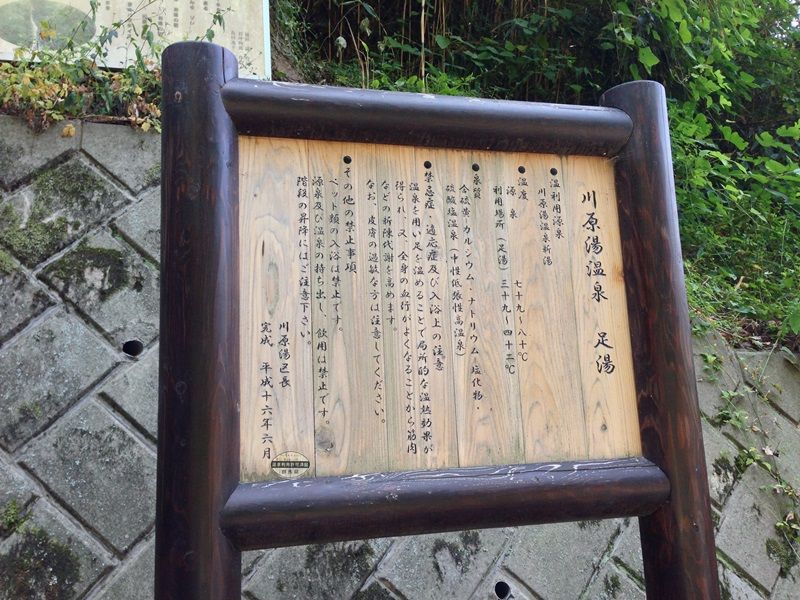 川原湯温泉 足湯
●温利用源泉
川原湯温泉新湯
●温度
源泉 七十九~八十℃
利用場所(足湯) 三十九~四十二℃
●泉質
含硫黄カルシウム・ナトリウム・塩化物・
硫酸塩温泉(中性低張性高温泉)
●禁忌症・適応症及び入浴上の注意
温泉を用い足を温めることで局所的な温熱効果が
得られ、又、全身の血行がよくなることから筋肉
などの新陳代謝を高めます。
なお、皮膚の過敏な方は注意してください。
●その他の禁止事項
ペット類の入浴は禁止です。
源泉及び温泉の持ち出し、飲用は禁止です。
階段の昇降にはご注意下さい。
川原湯区長
完成 平成十六年六月
温泉利用許可済証
群馬県